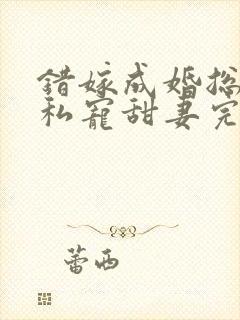 错嫁成婚总
私宠甜妻完
蕾西